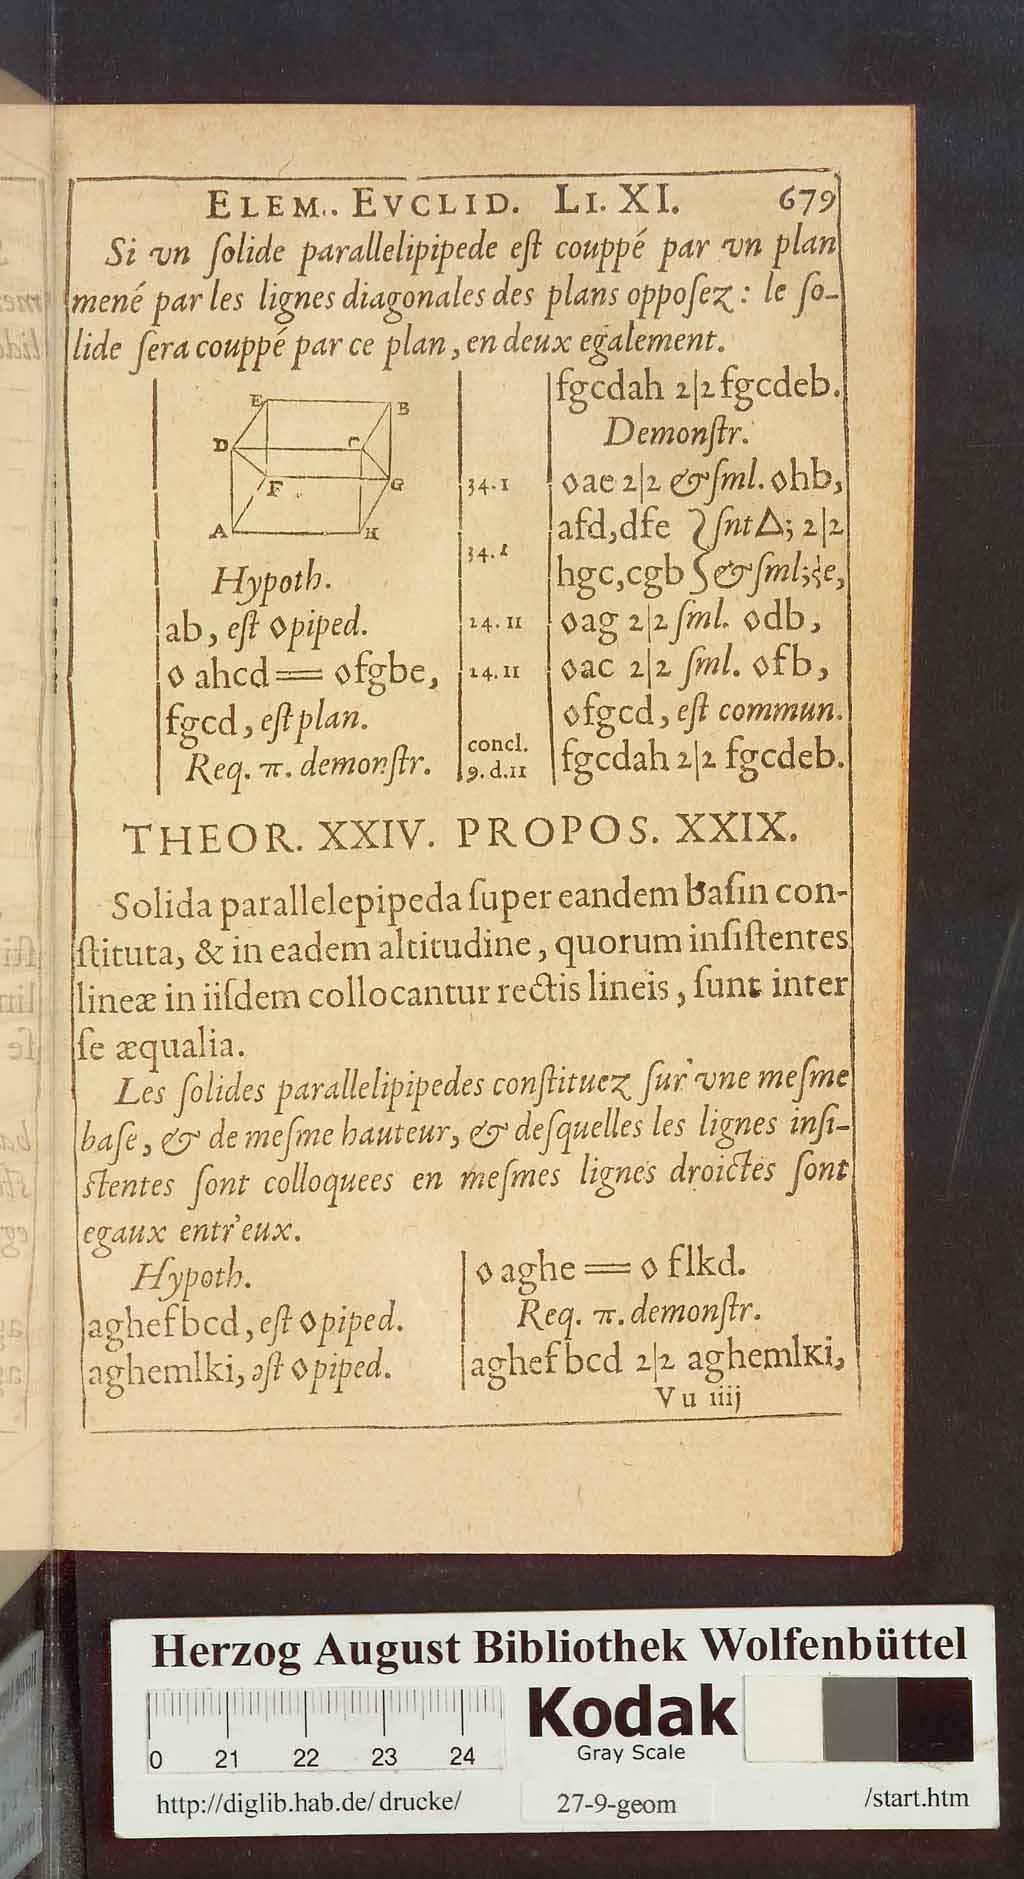 ELEM. EVCLID. LI. XI. 679
Si vn ſolide parallelipipede eſt couppé par vn plan
mené par les lignes diagonales des plans oppoſez : le ſo-
lide ſera couppé par ce plan, en deux egalement.
E B
D C
F G
A H
Hypoth.
ab, eſt ◊piped.
◊ ahcd == ◊fgbe,
fgcd, eſt plan.
Req. π. demonſtr.
34. 1
34. 1
24. 11
24. 11
concl.
9. d. 11
fgcdah 2|2 fgcdeb.
Demonſtr.
◊ae 2|2 & ſml. ◊hb,
afd, dfe ſnt Δ; 2|2
hgc, cgb & ſml;
◊ag 2|2 ſml. ◊db,
◊ac 2|2 ſml. ◊fb,
◊fgcd, eſt commun.
fgcdah 2|2 fgcdeb.
THEOR. XXIV. PROPOS. XXIX.
Solida parallelepipeda ſuper eandem baſin con-
ſtituta, & in eadem altitudine, quorum inſiſtentes
lineæ in iiſdem collocantur rectis lineis, ſunt inter
ſe æqualia.
Les ſolides parallelipipedes conſtituez ſur vne meſme
baſe, & de meſme hauteur, & deſquelles les lignes inſi-
ſtentes ſont colloquees en meſmes lignes droictes ſont
egaux entr'eux.
Hypoth.
aghefbcd, eſt ◊piped.
aghemlki, eſt ◊piped.
◊ aghe == ◊ flkd.
Req. π. demonſtr.
aghefbcd 2|2 aghemlki,
Vu iiij
Herzog August Bibliothek Wolfenbüttel
0 21 22 23 24
Kodak
Gray Scale
http://diglib.hab.de/drucke/ 27-9-geom /start.htm